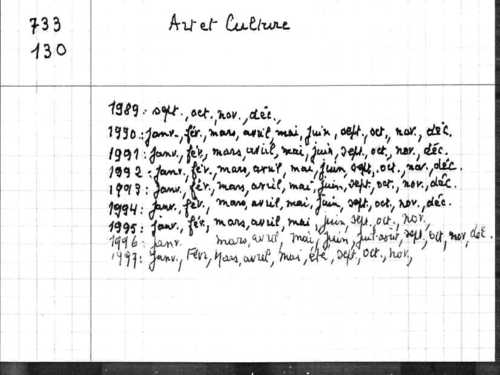 733
130
Art et Culture
1989: sept., oct., nov., déc.,
1990: janv., fév., mars, avril, mai, juin, sept., oct., nov., déc.
1991: janv., fév., mars, avril, mai, juin, sept., oct., nov., déc.
1992: janv., fév., mars, avril, mai, juin, sept., oct., nov., déc.
1993: janv., fév., mars, avril, mai, juin, sept., oct., nov., déc.
1994: janv., fév., mars, avril, mai, juin, sept., oct., nov., déc.
1995: janv., fév., mars, avril, mai, juin, sept., oct., nov.,
1996: janv. mars, avril, mai, juin, juil-août, sept, oct, nov, déc.
1997: Janv., Févr., Mars, avril, mai, été, sept., oct., nov.,